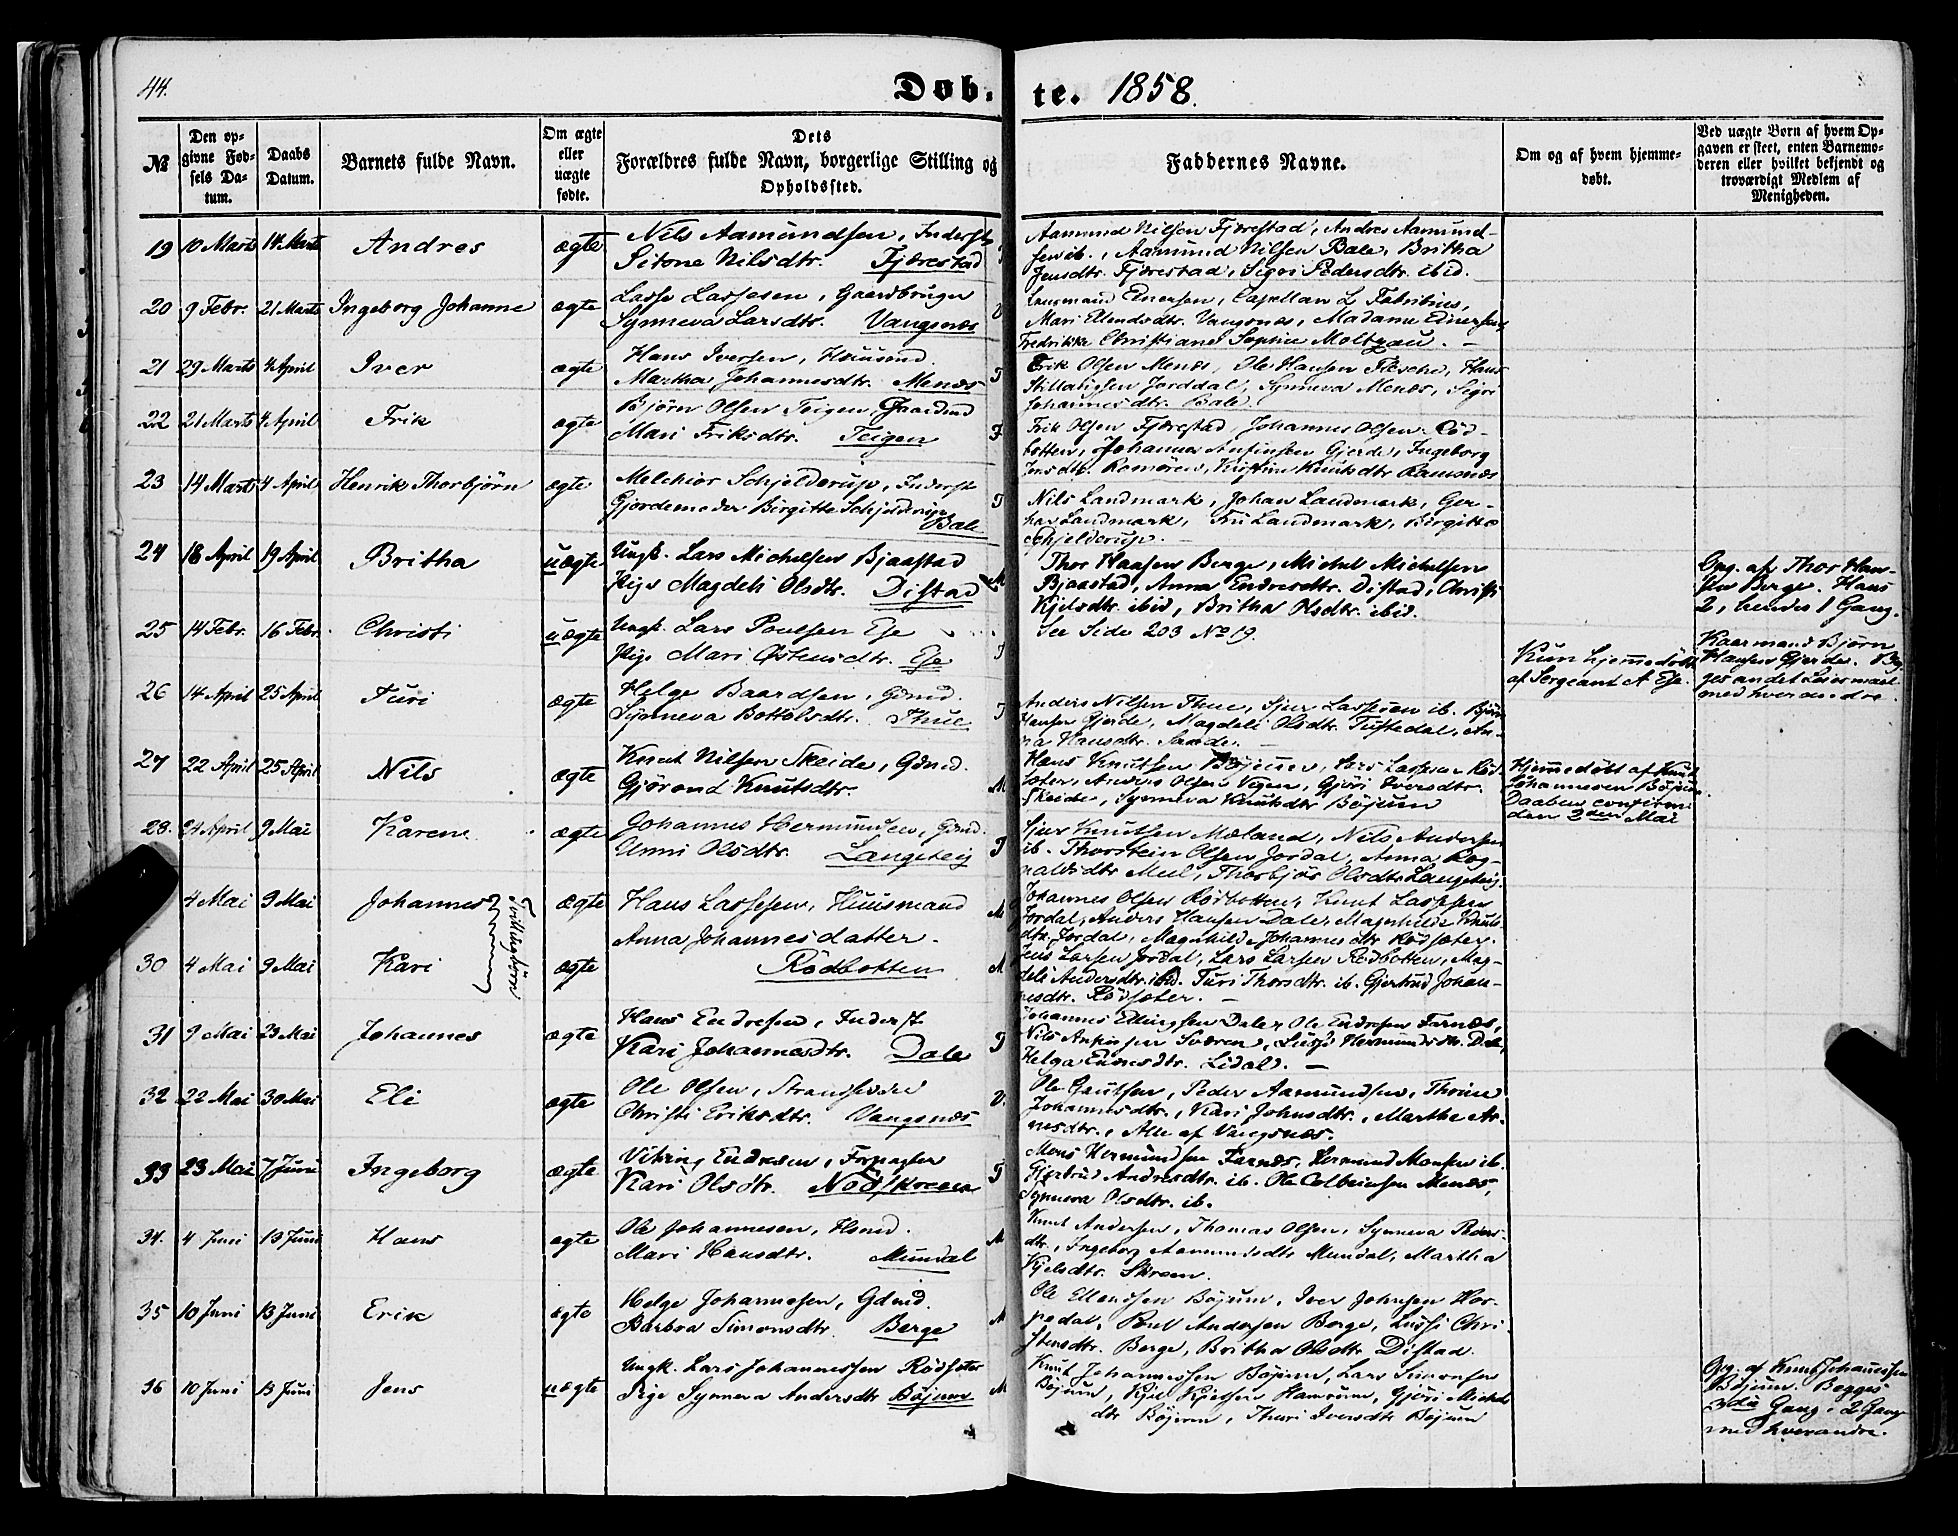 44.
Døb-
te. 1858.
№
Den op-
givne Fød-
sels Da-
tum.
Daabs
Datum.
Barnets fulde Navn.
Om ægte
eller
uægte
fødte.
Dets
Forældres fulde Navn, borgerlige Stilling og
Opholdssted.
Faddernes Navne.
Om og af hvem hjemme-
døbt.
Ved uægte Børn af hvem Op-
gaven er skeet, enten Barnemo-
deren eller hvilket bekjendt og
troværdigt Medlem af
Menigheden.
19 10 Marts 14 Marts Andres ægte Nils Aamundsen, Inderst
Sitone Nilsdtr. Fjærestad
Aamund Nilsen Fjærestad, Andres Aamund-
sen ib., Aamund Nilsen Bale, Britha
Jensdtr. Fjærestad, Sigri Pedersdtr. ibid.
20 9 Febr. 21 Marts Ingeborg Johanne ægte Lasse Lassesen, Gaardbruger
Synneva Larsdtr. Vangsnæs
Lensmand Einersen, Capellan L Fabritius,
Mari Ellendsdtr. Vangsnæs, Madame Einersen,
Fredrikke Christiane Sophie Moltzau. -
21 29 Marts 4 April Iver ægte Hans Iversen, Huusmd.
Martha Johannesdtr. Menæs
Erik Olsen Menæs, Ole Hansen Flesche, Hans
Jorddal, Synneva Menæs, Sigri
Johannesdtr. Bale.
22 21 Marts 4 April Erik ægte Bjørn Olsen Teigen, Gaardmd
Mari Eriksdtr. Teigen
Erik Olsen Fjærestad, Johannes Olsen Rød-
botten, Johannes Anfinsen Gjerde, Ingeborg
Jensdtr. Romøren, Kristin Knutsdtr Ramsnæs
23 14 Marts 4 April Henrik Thorbjørn ægte Melchior Schjelderup, Inderst
Gjordemoder Birgitte Schjelderup
Bale
Nils Landmark, Johan Landmark, Ger-
har Landmark, Fru Landmark, Birgitte
Schjelderup. -
24 18 April 19 April Britha uægte Ungk. Lars Michelsen Bjaastad
Pige Magdeli Olsdtr. Distad
Thor Hansen Berge, Michel Michelsen
Bjaastad, Anna Endresdtr. Distad, Christi
Kjelsdtr. ibid, Britha Olsdtr. ibid.
Opg. af Thor Han-
sen Berge. Hans
2, hendes 1 Gang.
25 14 Febr. 16 Febr. Christi uægte Ungk. Lars Poulsen Ese
Pige Mari Østensdtr. Ese
See Side 203 No 19.
Kun hjemedøbt
af Sergeant A Ese.
Kaarmand Bjørn
Hansen Gjerde. Beg-
ges andet Leiermaal
med hverandre
26 14 April 25 April Turi ægte Helge Baardsen, Gdmd.
Synneva Bottolsdtr. Thue
Anders Nilsen Thue, Sjur Lassesen ib. Bjørn
Hansen Gjerde, Magdeli Olsdtr. Tuftedal, An-
na Hansdtr. Sande. -
27 22 April 25 April Nils ægte Knut Nilsen Skeide, Gdmd.
Gjørond Knutsdtr.
Hans Knutsen Bøjum, Lars Lassesen Rød-
sæter, Anders Olsen Vigen, Gjøri Iversdtr.
Skeide, Synneva Knutsdtr Bøjum
Hjemmedøbt af Knut
Johannesen Bøjum.
Daaben confirm.
den 2den Mai
28. 24 April 9 Mai Karen ægte Johannes Hermundsen, Gdmd.
Unni Olsdtr. Langeteig
Sjur Knutsen Mæland, Nils Andersen
ib. Thorstein Olsen Jordal, Anna Rog-
naldsdtr Meel, Thorbjør Olsdtr Langeteig.
4 Mai 9 Mai Johannes Tvillingbörn ægte Hans Lassesen, Huusmand
Anna Johannesdatter.
Johannes Olsen Rødbotten, Knut Lassesen
Jordal, Anders Hansen Dale, Magnhilde Knuts-
dtr. Jordal, Magnhilde Johannesdtr Rødsæter.
30 4 Mai 9 Mai Kari ægte Rödbotten
Jens Larsen Jordal, Lars Larsen Rødbotten, Mag-
deli Andersdtr. ibid. Turi Thorsdtr. ib. Gjertrud Johan-
nesdtr. Rødsæter. -
31 9 Mai 23 Mai Johannes ægte Hans Endresen, Inderst
Kari Johannesdtr. Dale
Johannes Ellingsen Dale, Ole Endresen Farnæs,
Nils Anfinsen Sværen, Lussi Hermundsdtr. Dale,
Helga Endresdtr. Lidal. -
32 22 Mai 30 Mai Eli ægte Ole Olsen, Strandsidder
Christi Eriksdtr. Vangsnæs
Ole Gautsen, Peder Aamundsen, Thorine
Johannesdtr., Kari Johnsdtr., Marthe Ar-
nesdtr., Alle af Vangsnæs.
33 23 Mai 7 Juni Ingeborg ægte Viking Endresen, Forpagter
Kari Olsdtr.
Mons Hermundsen Farnæs, Hermund Monsen ib.
Gjertrud Andersdtr. ib. Ole Colbeinsen Menæs,
Synneva Olsdtr. ib.
34. 4 Juni 13 Juni Hans ægte Ole Johannesen, Hsmd.
Mari Hansdtr. Mundal
Knut Andersen, Thomas Olsen, Synneva Peders-
dtr., Ingeborg Aamundsdtr Mundal, Martha
Kjelsdtr. Skreen.
35 10 Juni 13 Juni Erik ægte Helge Johannesen, Gdmd.
Barbra Simonsdtr. Berge
Ole Ellendsen Bøjum, Iver Johnsen Hor-
pedal, Poul Andersen Berge, Lussi Chri-
stensdtr. Berge, Britha Olsdtr. Distad.
36 10 Juni 13 Juni Jens uægte Ungk. Lars Johannessen Rødseter
Pige Synneva Andersdtr Bøjum
Knut Johannessen Bøjum, Lars Simonsen
Bøjum, Kjel Kjelsen Hamrum, Gjøri Michels
dtr Bøjum, Thuri Iversdtr Bøjum
Opg. af Knut Johannessen
Bøjum. Begges
3die Gang, 2 Gang
med hverandre.